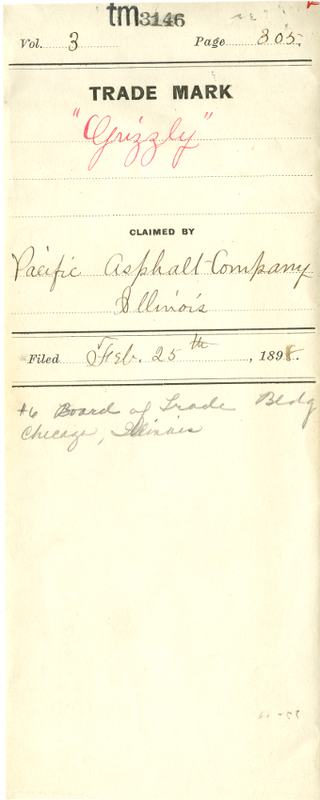 tm3146
Vol. 3 Page 305.
TRADE MARK
"Grizzly"
CLAIMED BY
Pacific Asphalt Company
Illinois
Filed Feb. 25th, 1898.
46 Board of Trade Bldg
Chicago, Illinois